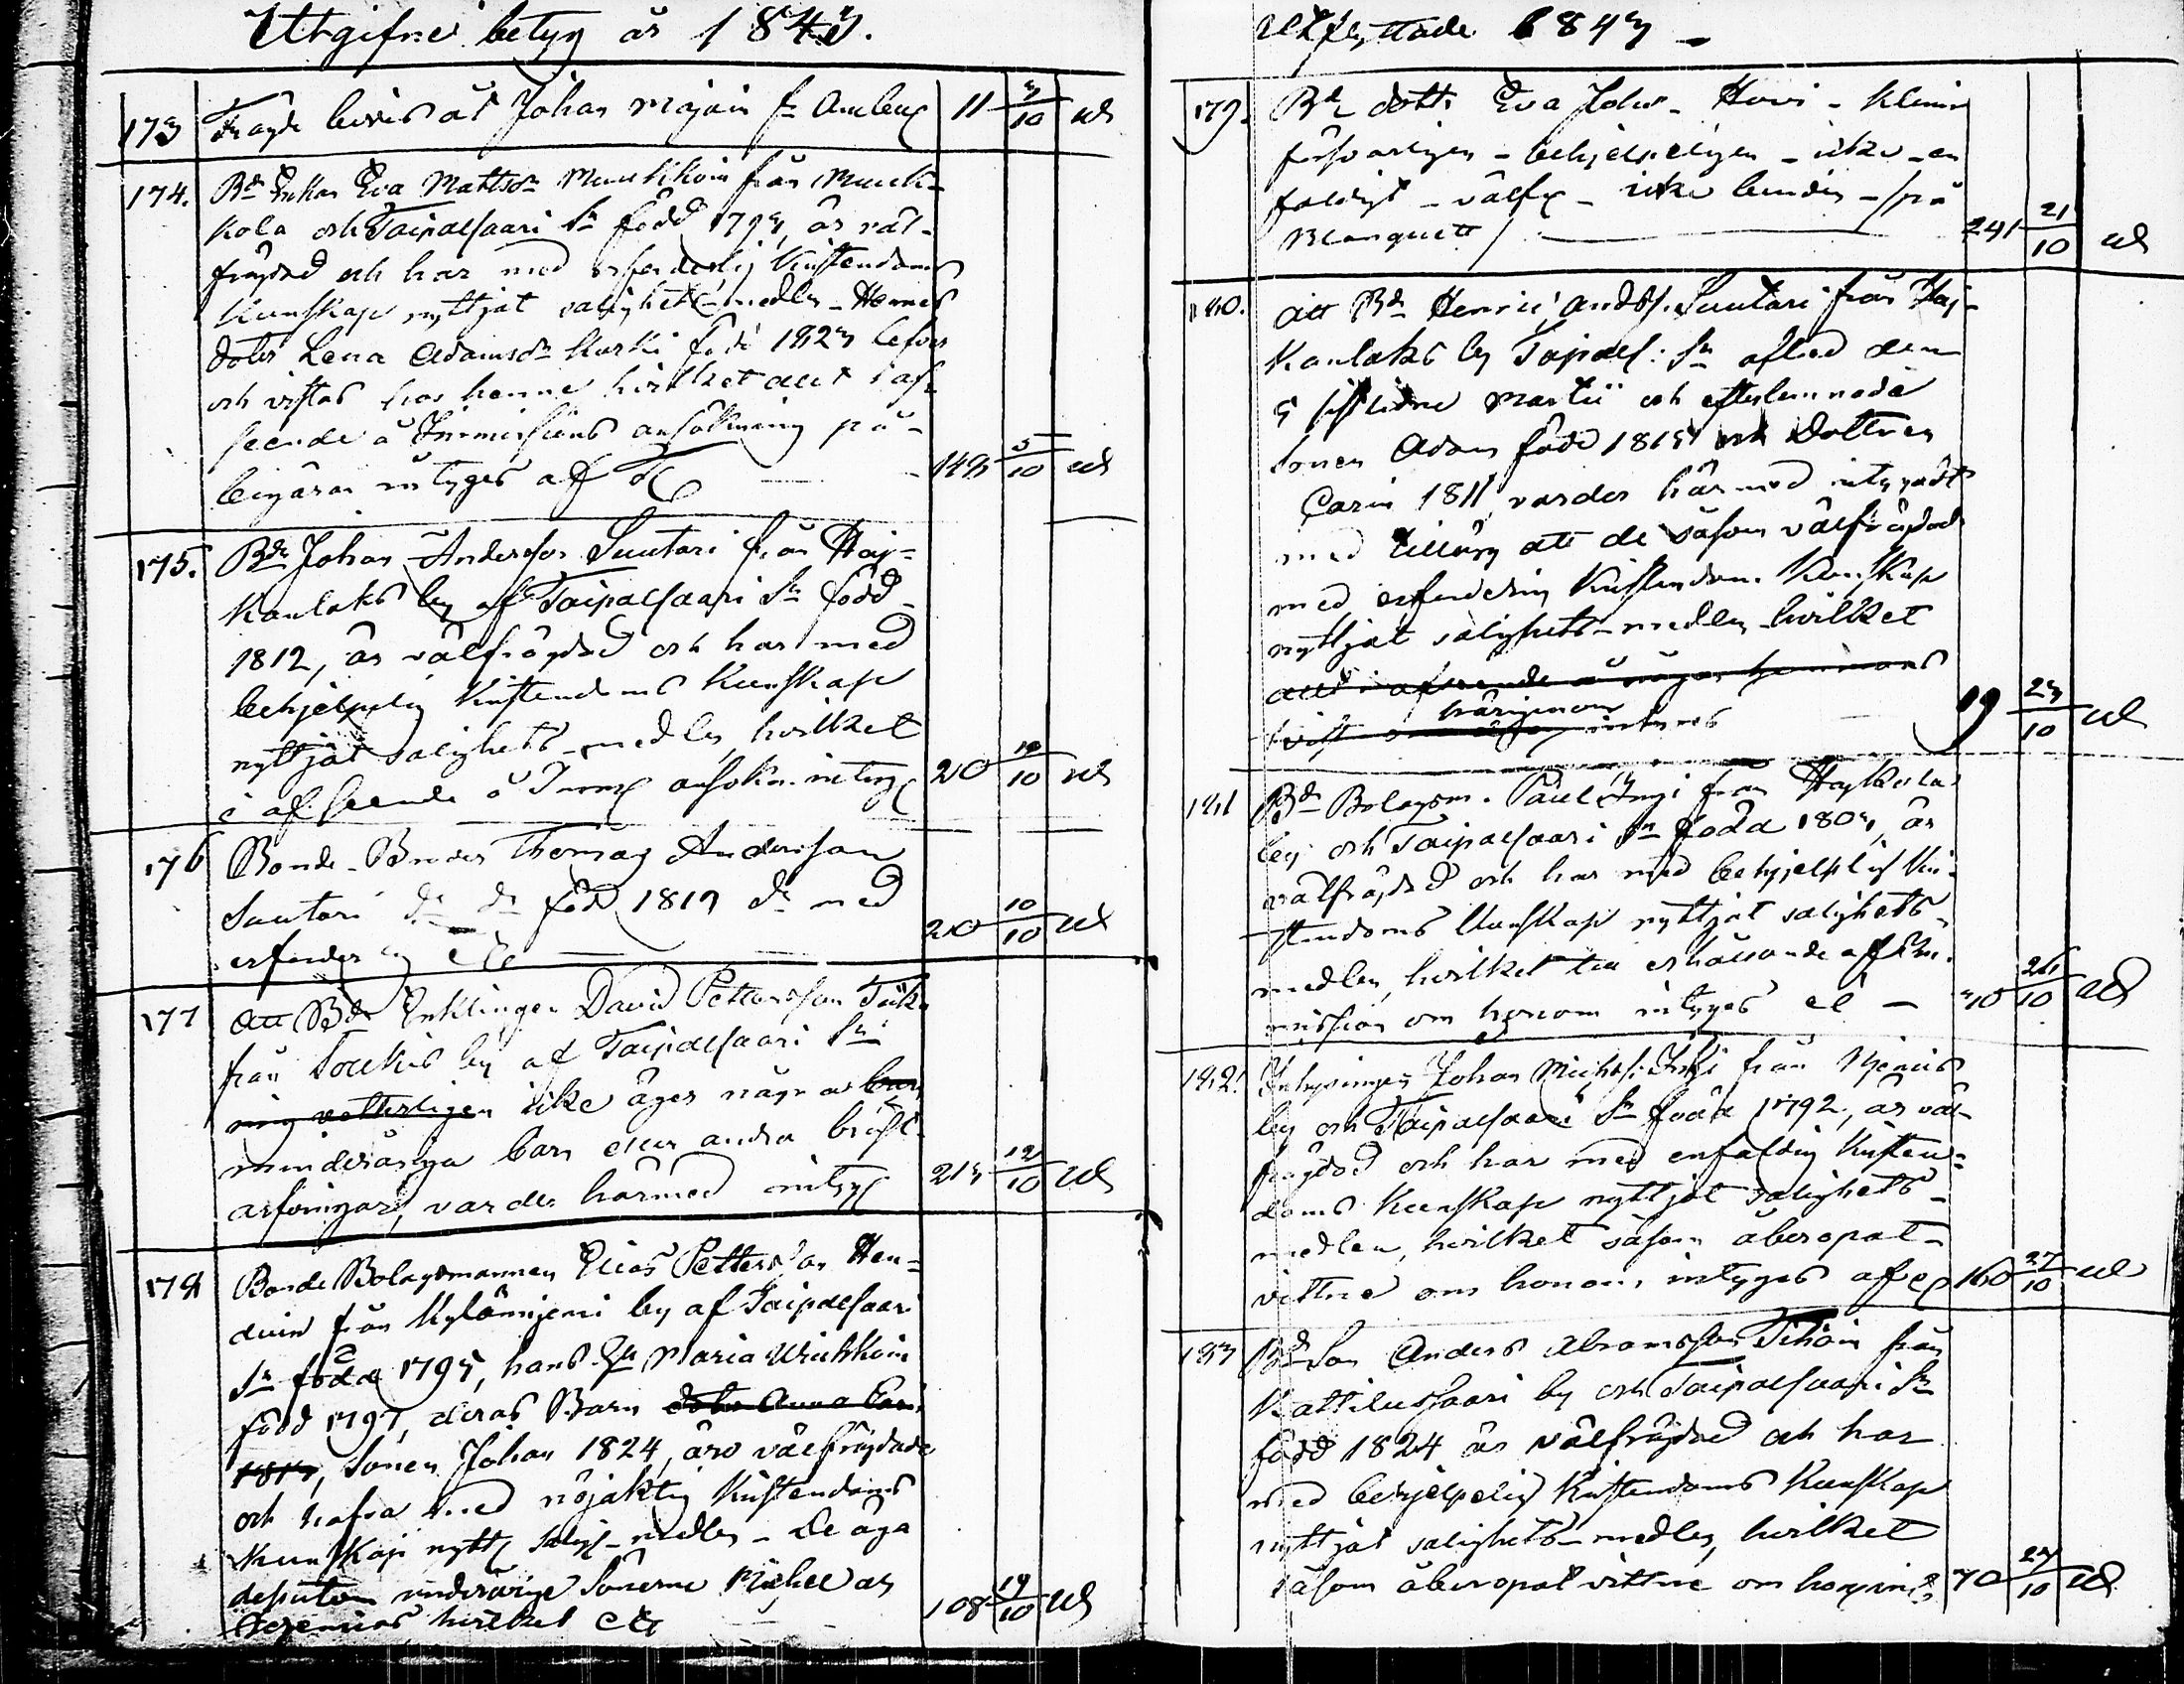 Utgifne betyg år 1843.
173 Frägde bevis åt Johan 11 3/10
174. Bde Enkan Eva Mattsdr Munkkoin från Munk-
kola och Taipalsaari Sn född är väl-
frägdad och har med erforderlig Kristendoms
Kunskap nyttjat salighets-medlen - Hennes
doter Lena Adamsdr Kurki född
och vistas hos henne hvilket allt i af-
seende å Immissions ansökning på
begäran intygas af 5/10
175. Bde Johan Andersson Suutari från Haj-
kanlaks by af Taipalsaari Sn född
1812, är välfrägdad och har med
behjelplig Kristendoms Kunskap
nyttjat salighets-medlen, hvilket
i afseende å ansökn. intyg 20 10/10
176 Bonde-Broder Thomas Andersson
Suutari dn dn född 1819 dn med
erforderlig etc 20 10/10
177 Att Bde Enklingen David Pettersson
från Soukis by af Taipalsaari Sn
icke äger några
minderåriga barn eller andra bröst-
arfvingar, varder härmed intyg 12/10
178 Bonde Bolagsmannen Elias Pettersson Hen-
duin från Kylänniemi by af Taipalsaari
Sn född 1795, hans Hu Maria
född 1797, deras Barn doter Anna
Sonen Johan 1824, äro välfrägdade
och hafva med nöjaktig Kristendoms
Kunskap nyttj salig-medlen - De äga
dessutom minderårige Sönerne Michel och
Jeremias hvilket etc 108 19/10
Utflyttade 1843
179. Bde dottr Eva Johsdr Hovi
försvarligen - behjelpeligen - icke - en
faldigt - välfr - icke bunden - på
Blanquett 241 21/10
180. Att Bde Henric Andss. Suutari från Haj-
kanlaks by Taipals: Sn afled den
5 sistlidne Martii och efterlemnade
Sonen Adam född 1815 och Dottren
Carin 1811 varder härmed intygadt
med tillägg att de såsom välfrägdade
med erforderlig Kristendoms Kunskap
nyttjat salighets-medlen hvilket
allt i afseende å någon hemmans
härigenom
tvist intygas 19 23/10
181 Bde Bolagsm. Paul Inzi från Haikola
by och Taipalsaari Sn född är
välfrägdad och har med behjelplig Kri-
stendoms Kunskap nyttjat salighets-
medlen, hvilket till erhållande af Im-
mission om honom intygas 26/10
182. Inhysingen Johan Michss. Inzi från
by och Taipalsaari Sn född 1792, är väl-
frägdad och har med enfaldig Kristen-
doms Kunskap nyttjat salighets-
medlen, hvilket såsom åberopat
vittne om honom intygas af 160 27/10
183 Bde Son Anders Abramsson Tihoin från
Kattilussaari by och Taipalsaari Sn
född 1824 är välfrägdad och har
med behjelpelig Kristendoms Kunskap
nyttjat salighets-medlen, hvilket
såsom åberopat vittne om honom 70 27/10